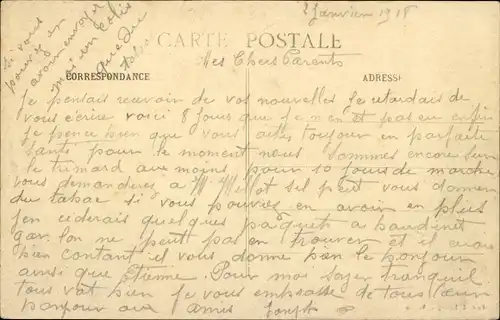 2 Janvier 1918
Si vous
pouvez en
avoir envoyer
moi en colis
que du
tabac
CARTE POSTALE
CORRESPONDANCE
ADRESSE
Mes Chers Parents
Je pensais recevoir de vos nouvelles je retardais de
vous écrire voici 8 jours que je n'en et pas eu enfin
je pence bien que vous aites toujour en parfaite
santé pour le moment nous sommes encore sur
le trimard aux moins pour 10 jours de marche
vous demanderez a M. sil peut vous donner
du tabac si vous pouviez en avoir en plus
j'en cederais quelques paquets a baudinet
gar lon ne peut pas en trouver et il serait
bien contant il vous donne bien le bonjour
ainsi que Etienne. Pour moi soyer tranquil
tous vat bien je vous embrasse de tous Cœur
bonjour aux amis Joseph